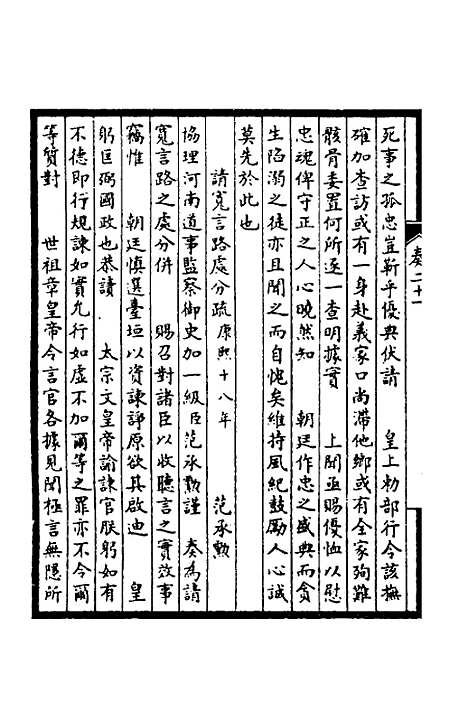 死事之孤忠豈靳乎優典伏請　　皇上勅部行令該撫
確加查訪或有一身赴義家口尚滯他鄉或有全家殉難
骸骨委置何所逐一查明據實　　上聞亟賜優恤以慰
忠魂俾守正之人心曉然知　　朝廷作忠之盛典而貪
生陷溺之徒亦且聞之而自愧矣維持風紀鼓勵人心誠
莫先於此也
請寬言路處分疏康熙十八年　　范承勲
協理河南道事監察御史加一級臣范承勲謹　　奏為請
寬言路之處分併　　賜召對諸臣以收聽言之實效事
竊惟　　朝廷慎選臺垣以資諫諍原欲其啟迪　　皇
躬匡弼國政也恭讀　　太宗文皇帝諭諫官朕躬如有
不德即行規諫如實允行如虛不加爾等之罪亦不令爾
等質對　　世祖章皇帝令言官各據見聞極言無隱所
奏二十一